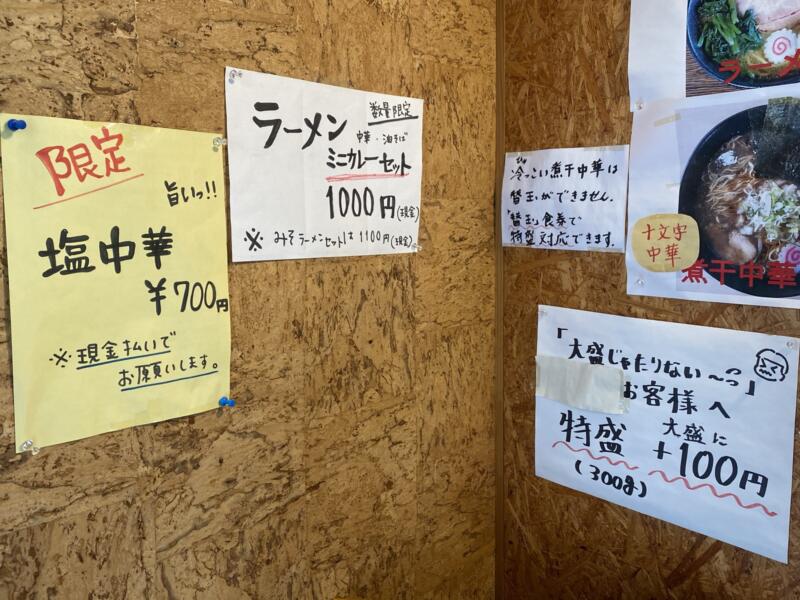 限定
旨いっ!!
塩中華
¥700円
※現金払いで
お願いします。
数量限定
ラーメン
中華・油そば
ミニカレーセット
1000円(現金)
※みそラーメンセットは1100円(現金)
冷っこい煮干中華は
替玉ができません。
"替玉"食券で
特盛対応できます。
ラーメ
十文字
中華
煮干中華
「大盛じゃたりない〜っ」
お客様へ
特盛
大盛に
+100円
(300g)